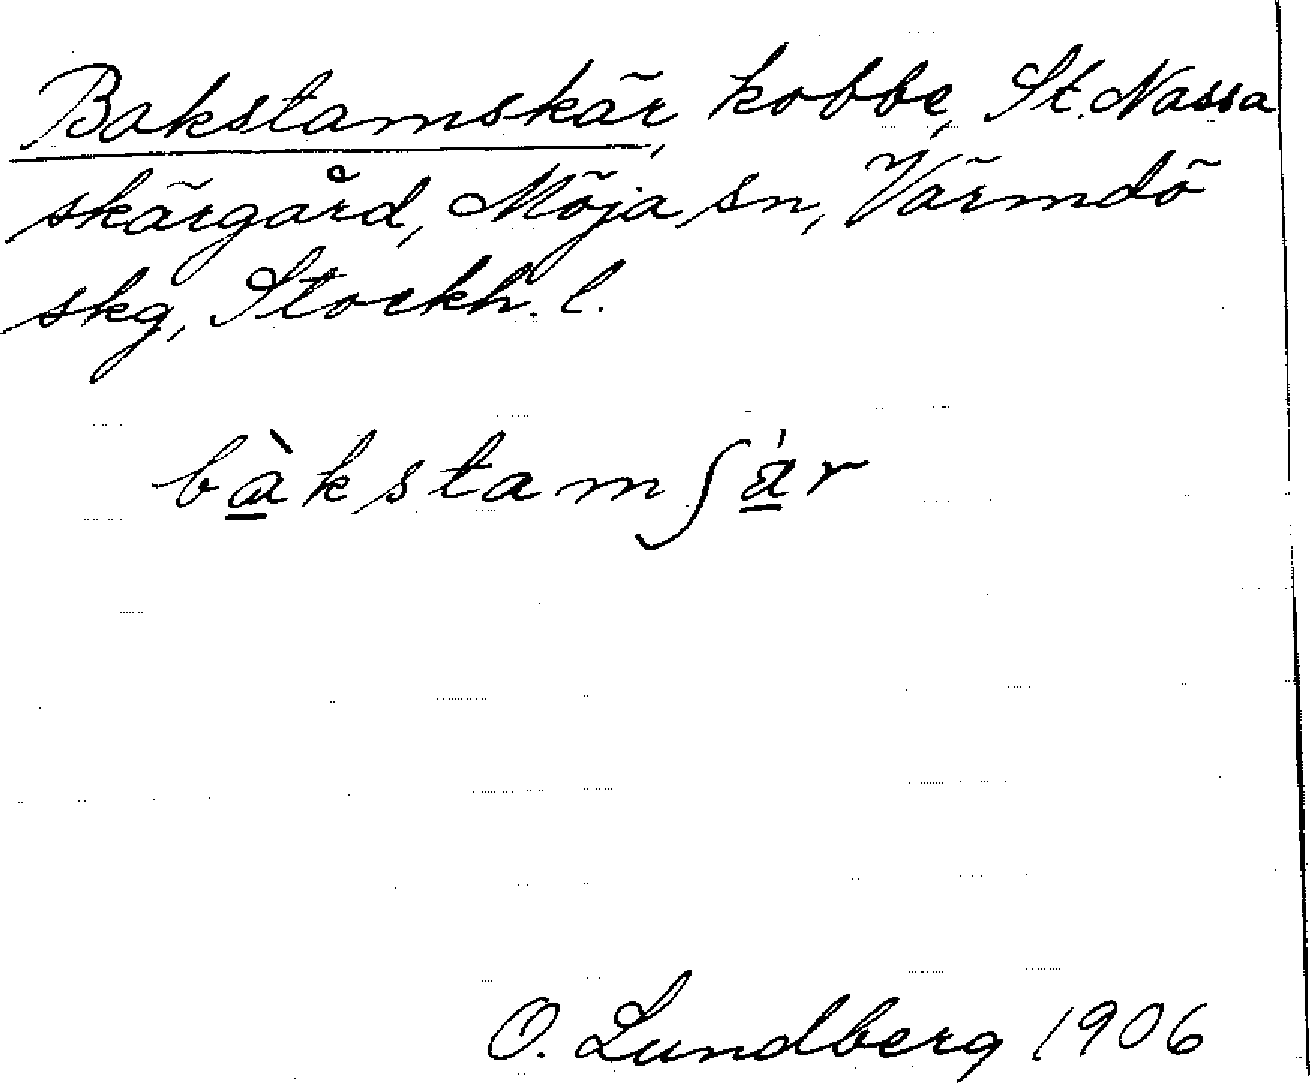 Bakstamskär, kobbe, St. Nassa
skärgård, Möja sn, Värmdö
skg, Stockh. l.
bàkstamʃá̈r
O. Lundberg 1906